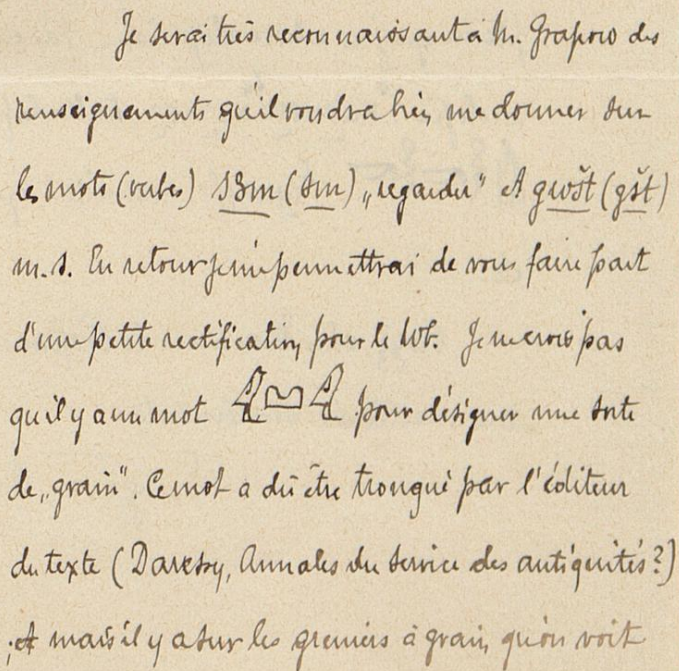 Je serai très reconnaissant à M. Grapow des
renseignements qu'il voudra bien me donner sur
les mots (verbes) s3m (sm) „regarder" et gwšt (gšt)
m. s. En retour je me permettrai de vous faire part
d'une petite rectification pour le Wb. Je ne crois pas
qu'il y a un mot pour désigner une sorte
de „grain". Ce mot a dû être tronqué par l'éditeur
du texte (Daressy, Annales du Service des antiquités?)
mais il y a sur les greniers à grain, qu'on voit